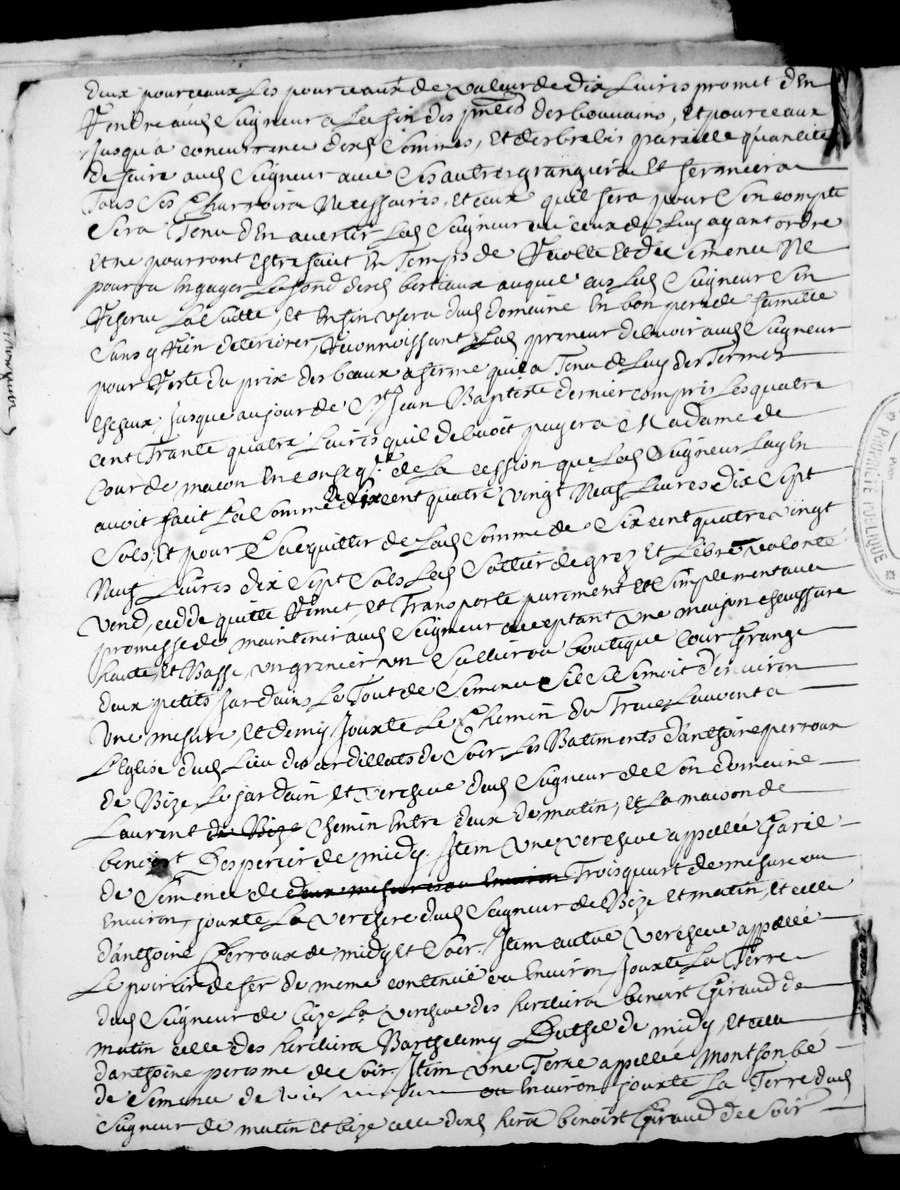 deux pourceaux Les pourceaux de valeur de dix Livres promet d'En
Rendre aud Seigneur a La fin des pntes des bouvains, et pourceaux
Jusqua concurrence desd sommes, et des brebis pareille quantité
de faire aud Seigneur avec ses autres grangiers et
Tous ses Charrois Necessaires, et ceux quil fera pour son compte
Sera Tenu d'En avertir Led Seigneur ou ceux de Luy ayant ordre
Et ne pourront Estre faits En Temps de Recolte Et de Semence Ne
pourra Engager Le fond desd bestiaux auquel cas Led Seigneur S'en
Reserve La Suitte, et Enfin usera dud domaine En bon pere de famille
Sans y Rien deteriorer, Reconnoissant Led preneur debvoir aud Seigneur
pour Reste du prix des beaux a ferme quil a Tenu de Luy des Termes
Escheux, Jusque au jour de St Jean Baptiste dernier compris Les quatre
cent Trante quatre Livres quil debvoit payer a Madame de
Cour de macon En conseqce de La cession que Led Seigneur Luy En
avoit faict La Somme de Six cent quatre vingt Neuf Livres dix Sept
Sols, Et pour S'acquitter de Lad Somme de Six cent quatre vingt
Neuf Livres dix Sept Sols Led Sottier de gré Et Libre volonté
Vend, cedde quitte Remet, et Transporte purement Et Simplement avec
promesse de maintenir aud Seigneur acceptant Une maison chauffure
haute, Et Basse, un grenier un boutique Cour Grange
deux petits Jardains Le Tout de Semence Sil Se Semoit d'Environ
Une mesure, et demy Jouxte Le Chemin du Laurent a
L'Eglise dud Lieu des ardillats de Soir, Les Batiments d'anthoine perroux
de Bize, Le jardain Et verchere dud Seigneur de Son domaine
Laurent de Bize Chemin Entre deux de matin, et La maison de
benoist Desperier de midy. Item Une verchere appellée
de Semence de deux mesures ou Environ Trois quart de mesure ou
Environ, jouxte La verchere dud Seigneur de Bize et matin, et celle
d'anthoine Perroux de midy Et Soir. Item autre verchere appellée
Le poirier de fer de meme contenue ou Environ Jouxte La Terre
dud Seigneur de Bize La verchere des heritiers benoist Giraud de
matin celle des heritiers Barthelemy Duthel de midy, et celle
d'anthoine de Soir. Item Une Terre appellée
de Semence de ou Environ jouxte La Terre dud
Seigneur de matin et bize celle desd hers benoist Giraud de Soir